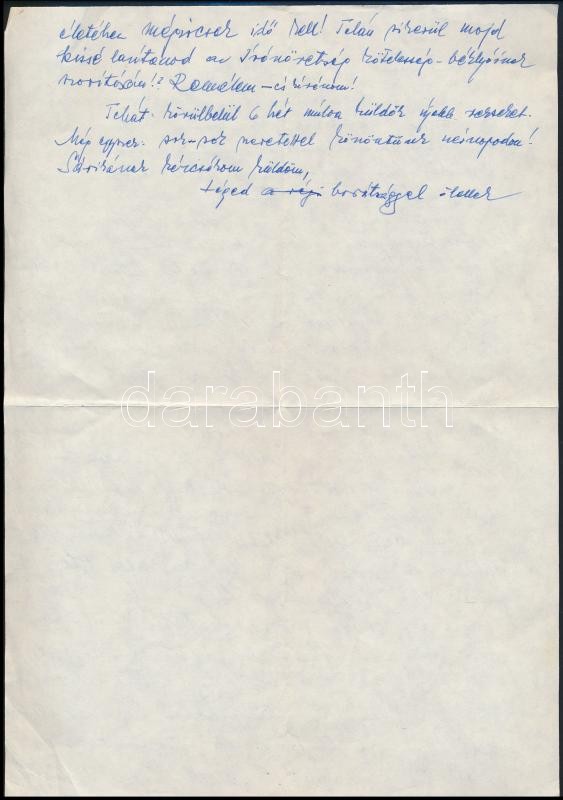 életéhez mégiscsak idő kell! Talán sikerül majd
kissé lazítanod az Írószövetség kötelesség-béklyóinak
szorításán!? Remélem – és kívánom!
Tehát: körülbelül 6 hét múlva küldök újabb verseket.
Még egyszer: sok-sok szeretettel köszöntünk névnapodon!
Sárikának kézcsókom küldöm,
téged a régi barátsággal ölellek
darabanth